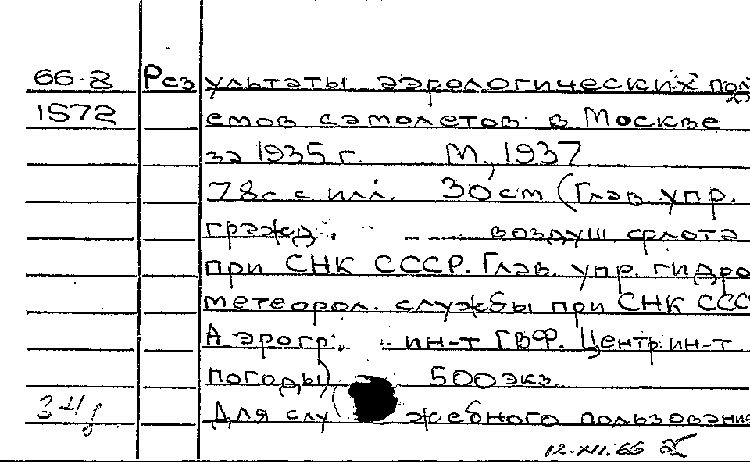 66-8 Результаты аэрологических под
1572 емов самолетов в Москве
за 1935 г. М, 1937
78с с илл. 30см (Глав. упр.
гражд. воздуш флота
при СНК СССР. Глав. упр. гидро
метеорол. службы при СНК ССС
Аэрогр. ин-т ГВФ. Центр. ин-т
погоды) 500экз
Для слу жебного пользования
12.XII.66